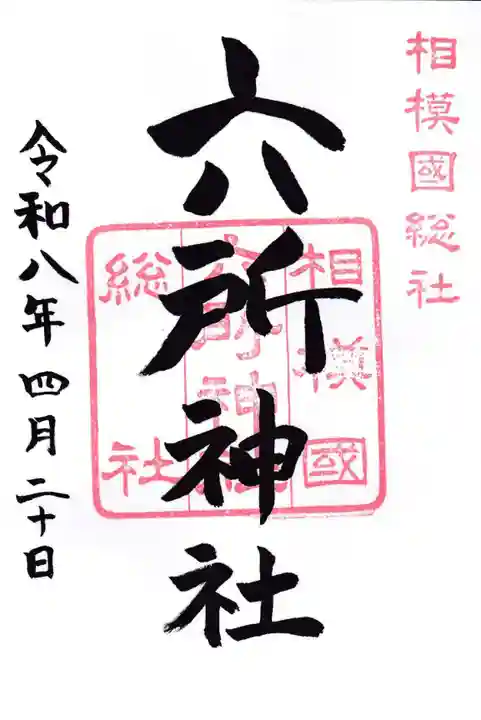 相模國総社
六所神社
相模國
六所神社
総社
令和八年四月二十日